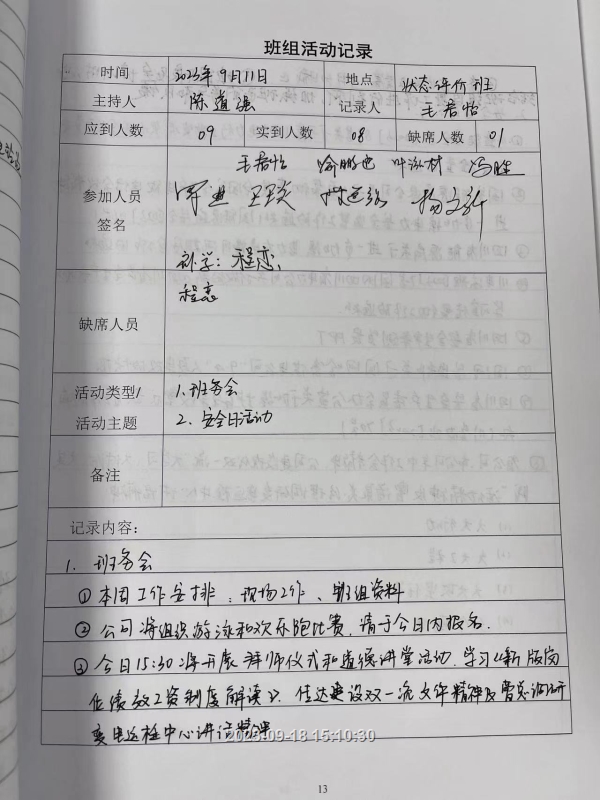 班组活动记录
时间 2023年9月11日 地点 状态评价班
主持人 陈道强 记录人 王君怡
应到人数 09 实到人数 08 缺席人数 01
王君怡 喻鹏也 冯胜
参加人员
签名
补学：程恋
程恋
缺席人员
活动类型/ 1.班务会
活动主题 2.安全日活动
备注
记录内容：
1. 班务会
①本周工作安排：现场工作、班组资料
②公司将组织游泳和欢乐跑比赛,请于今日内报名.
③今日15:30将开展拜师仪式和道德讲堂活动.学习《新版岗
位绩效工资制度解读》、传达建设双一流文件精神及曹总调研
变电运检中心讲话精神
2023-09-18 15:10:30
13